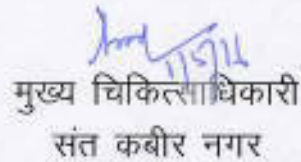 1/5/16
मुख्य चिकित्साधिकारी
संत कबीर नगर